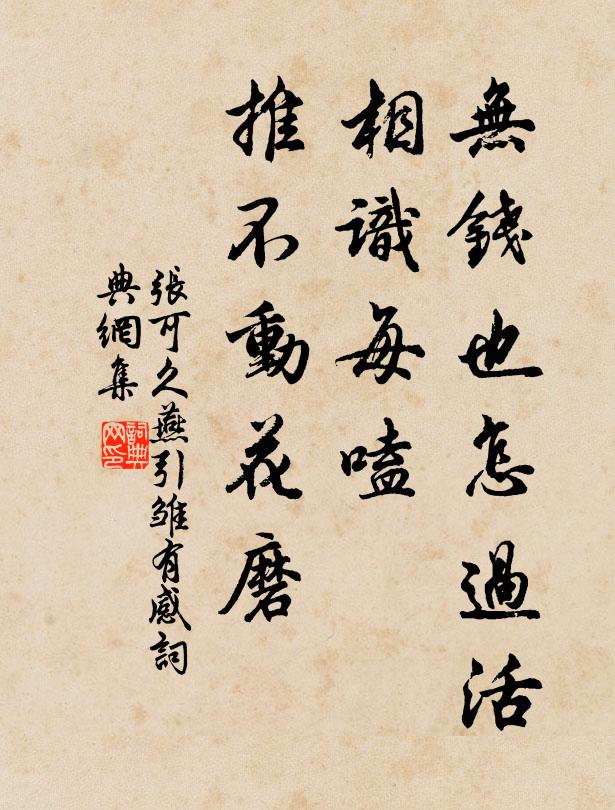 無錢也怎過活
相識每嗑
推不動花磨
張可久燕引雏有感詞
典網集
詞典
网印